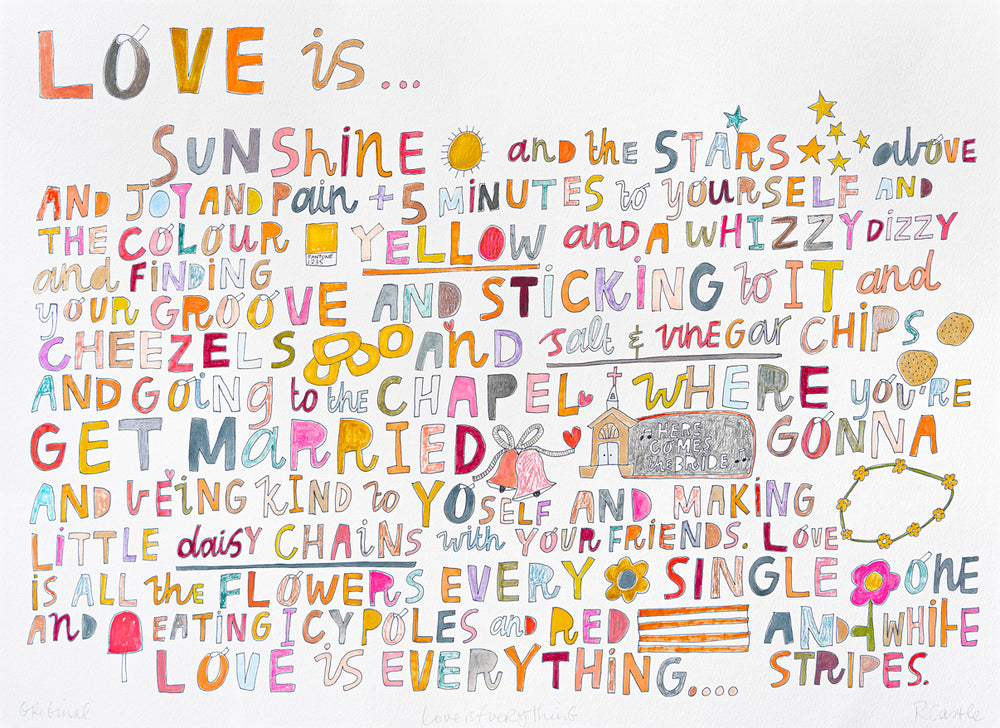 LOVE is...
SUNShiNE and the STARS above
AND JOY AND Pain + 5 MiNUTES to yOURSELF AND
THE COLOUR PANTONE 123C YELLOW and A WHIZZY DIZZY
and FiNDING
yOUR GROOVE AND STiCKING to IT and
CHEEZELS AND salt & vinegar CHIPS
AND GOING to the CHAPEL WHERE you'RE
GET MARRIED HERE COMES the BRIDE GONNA
AND BEING KIND to YOSELF AND MAKING
LiTTLE daisy CHAiNS with YOUR FRIENDS. LOVE
iS ALL the FLOWERS EVERY SINGLE ONE
AND EATING ICYPOLES and RED AND WHITE
LOVE is EVERYTHING.... STRIPES.
Original Love is Everything R Castle